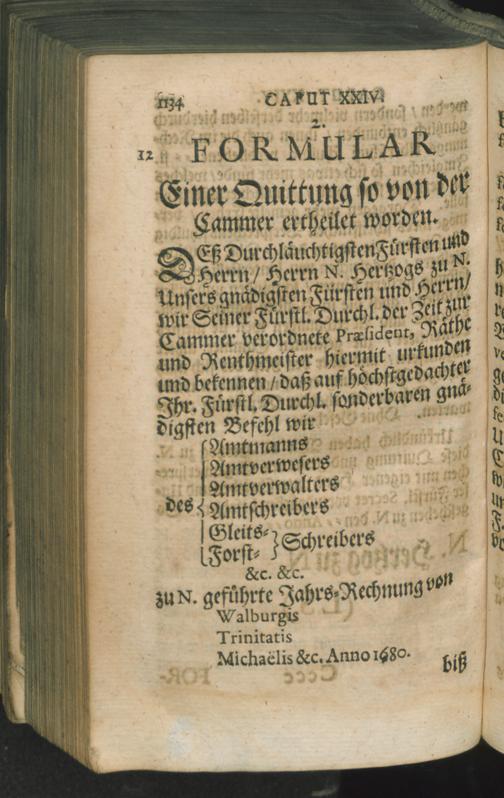 1134 CAPUT XXIV.
2.
12 FORMULAR
Einer Quittung so von der
Cammer ertheilet worden.
DEß Durchläuchtigsten Fürsten und
Herrn / Herrn N. Hertzogs zu N.
Unsers gnädigsten Fürsten und Herrn /
wir Seiner Fürstl. Durchl. der Zeit zur
Cammer verordnete Præsident, Räthe
und Renthmeister hiermit urkunden
und bekennen / daß auf höchstgedachter
Ihr. Fürstl. Durchl. sonderbaren gnä-
digsten Befehl wir
Amtmanns
Amtverwesers
Amtverwalters
des Amtschreibers
Gleits- Schreibers
Forst-
&c. &c.
zu N. geführte Jahrs-Rechnung von
Walburgis
Trinitatis
Michaëlis &c. Anno 1680.
biß